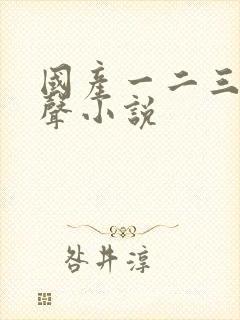 國產一二三
聲小說
咎井淳